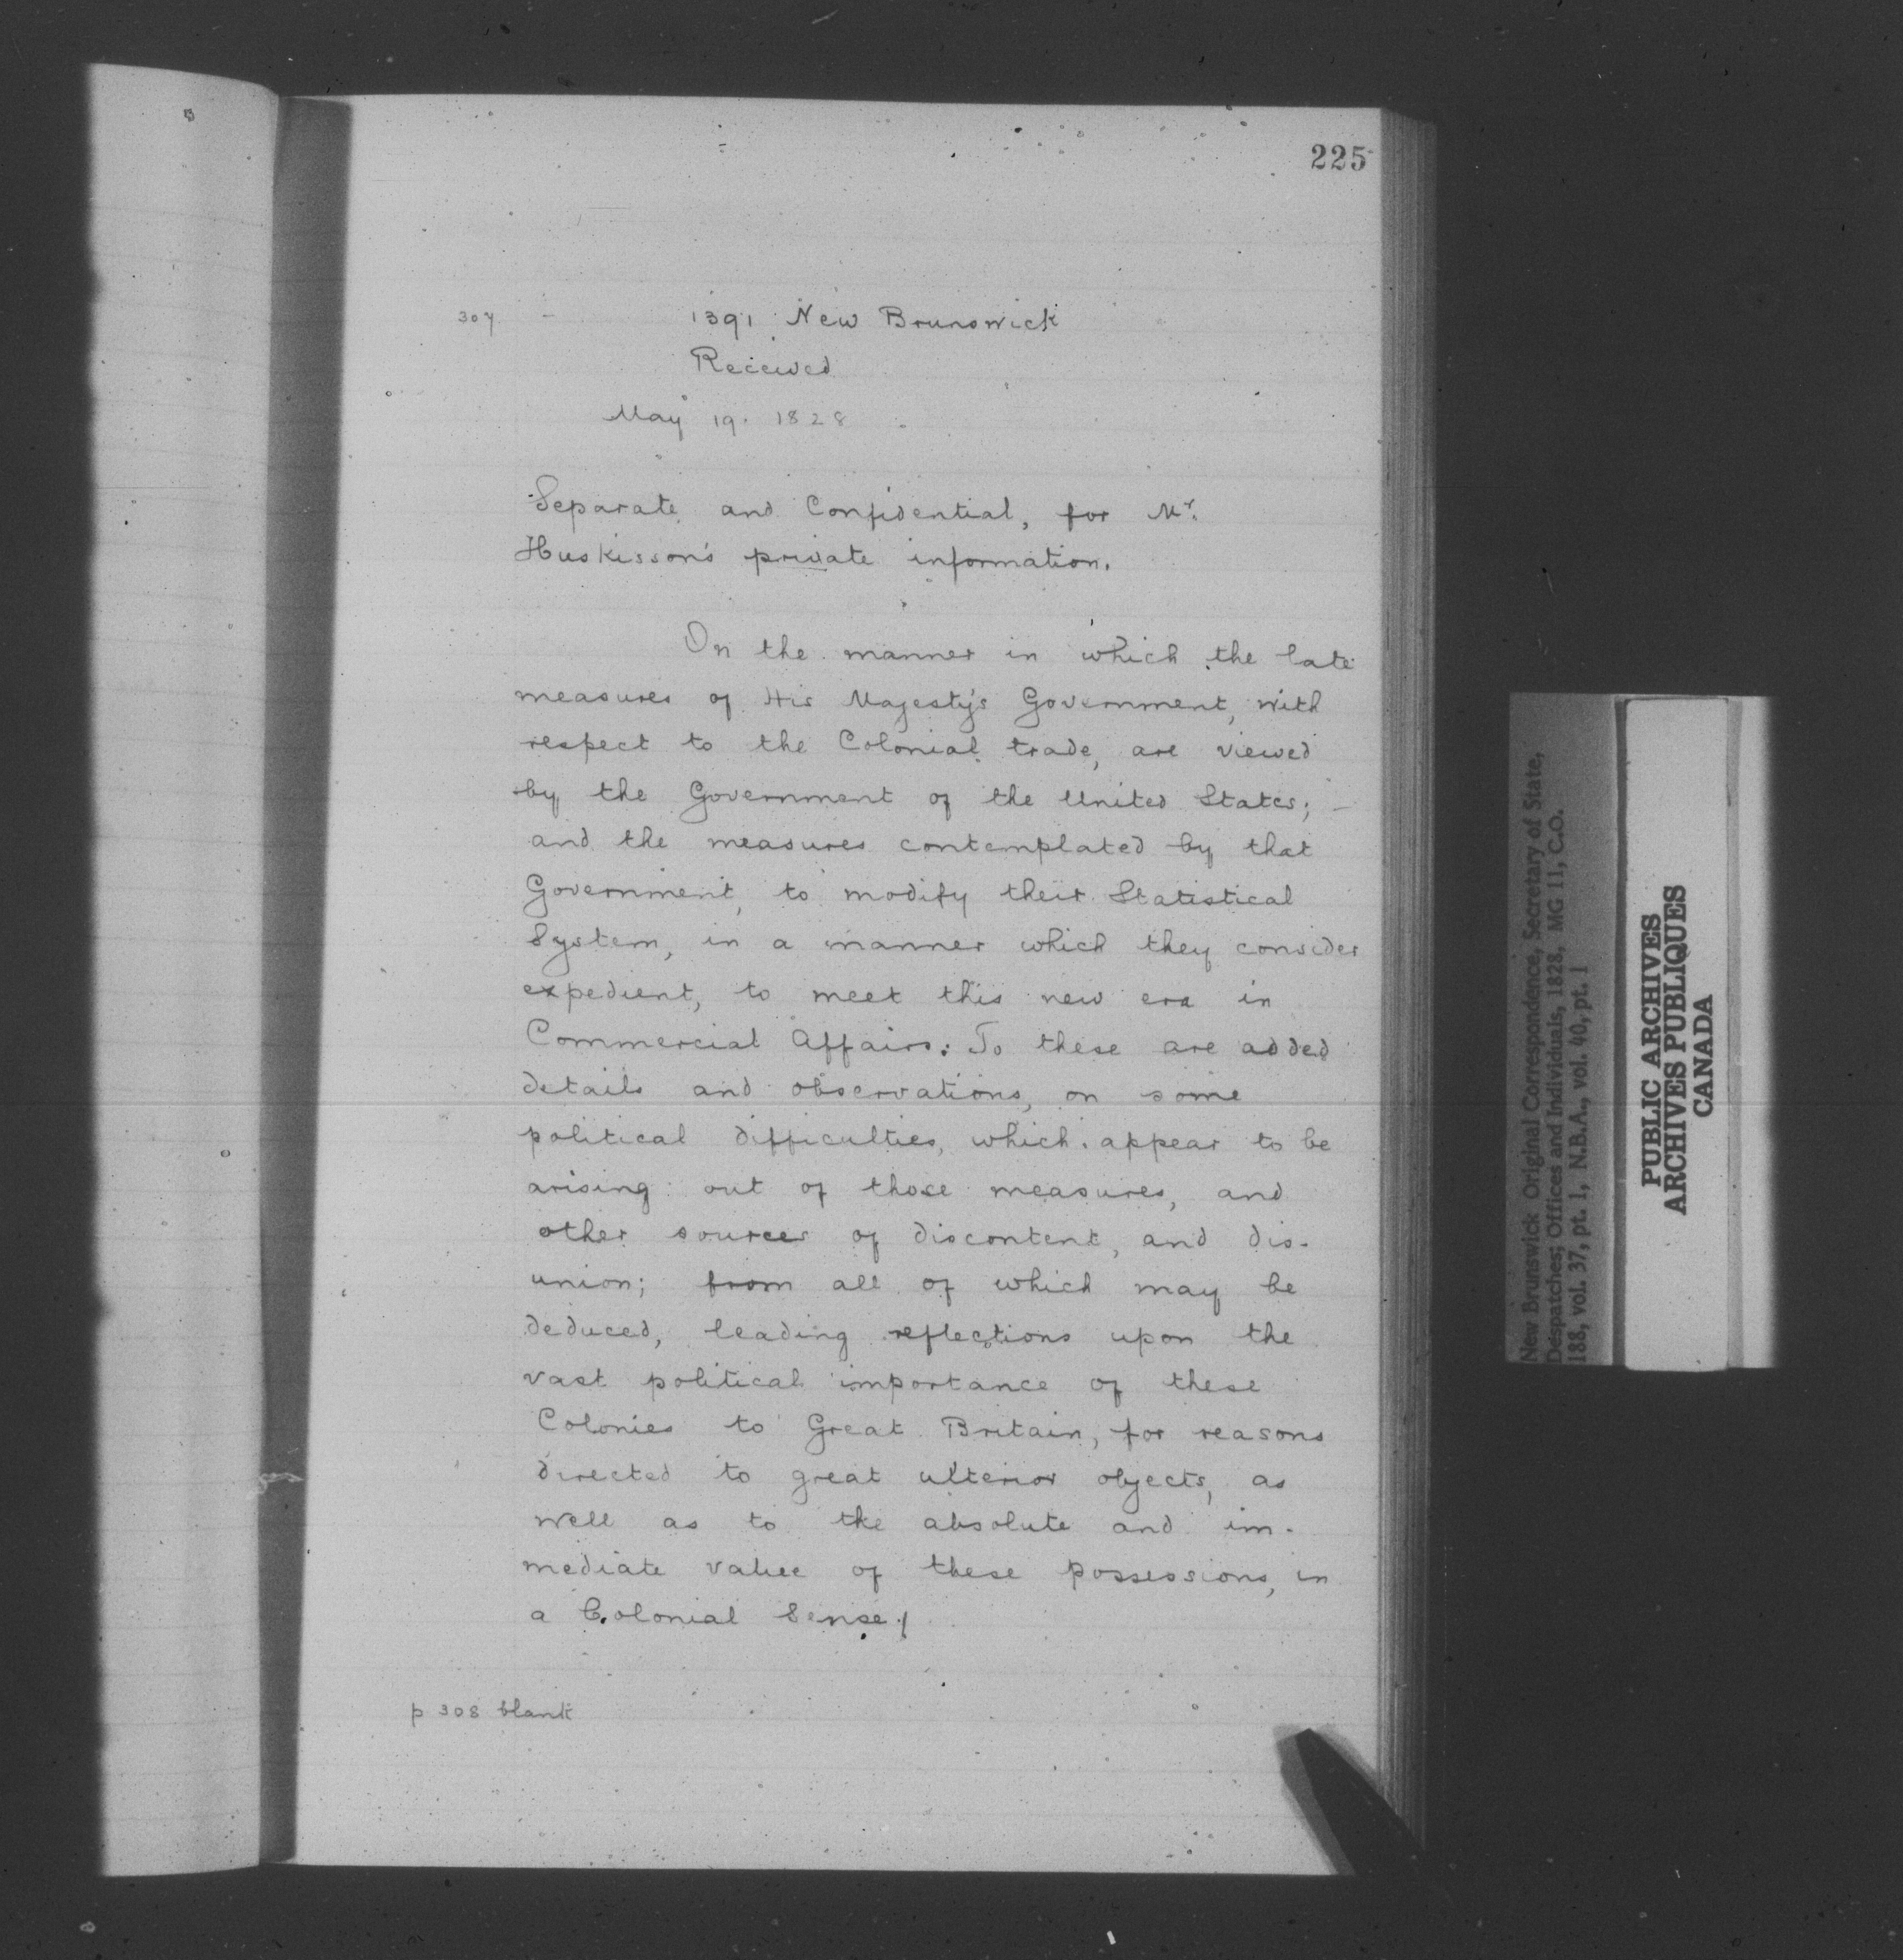 225
307 - 1391 New Brunswick
Received
May 19. 1828
Separate and Confidential, for Mr.
Huskisson's private information.
On the manner in which the late
measures of His Majesty's Government, with
respect to the Colonial trade, are viewed
by the Government of the United States; -
and the measures contemplated by that
Government, to modify their Statistical
System, in a manner which they consider
expedient, to meet this new era in
Commercial Affairs: To these are added
details and observations, on some
political difficulties, which appear to be
arising out of those measures, and
other sources of discontent, and dis-
union; from all of which may be
deduced, leading reflections upon the
vast political importance of these
Colonies to Great Britain, for reasons
directed to great ulterior objects, as
well as to the absolute and im-
mediate value of these possessions, in
a Colonial Sense./
p 308 blank
New Brunswick Original Correspondence, Secretary of State,
Despatches; Offices and Individuals, 1828, MG 11, C.O.
188, vol. 37, pt. 1, N.B.A., vol. 40, pt. 1
PUBLIC ARCHIVES
ARCHIVES PUBLIQUES
CANADA